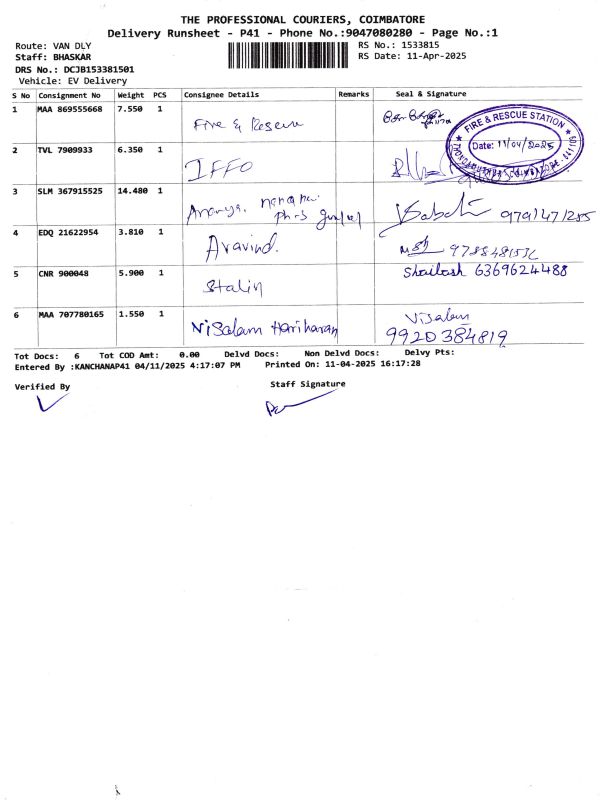 THE PROFESSIONAL COURIERS, COIMBATORE
Delivery Runsheet - P41 - Phone No.:9047080280 - Page No.:1
Route: VAN DLY
RS No.: 1533815
Staff: BHASKAR
RS Date: 11-Apr-2025
DRS No.: DCJB153381501
Vehicle: EV Delivery
S No Consignment No Weight PCS Consignee Details Remarks Seal & Signature
1 MAA 869555668 7.550 1 Fire & Rescue
FIRE & RESCUE STATION
Date: 11/04/2025
2 TVL 7909933 6.350 1 IFFO
3 SLM 367915525 14.480 1 Ananya.
9791471285
4 EDQ 21622954 3.810 1 Aravind.
5 CNR 900048 5.900 1 Stalin Shailash 6369624488
6 MAA 707780165 1.550 1 Visalam Hariharan Visalam
9920384819
Tot Docs: 6 Tot COD Amt: 0.00 Delvd Docs: Non Delvd Docs: Delvy Pts:
Entered By :KANCHANAP41 04/11/2025 4:17:07 PM Printed On: 11-04-2025 16:17:28
Verified By Staff Signature